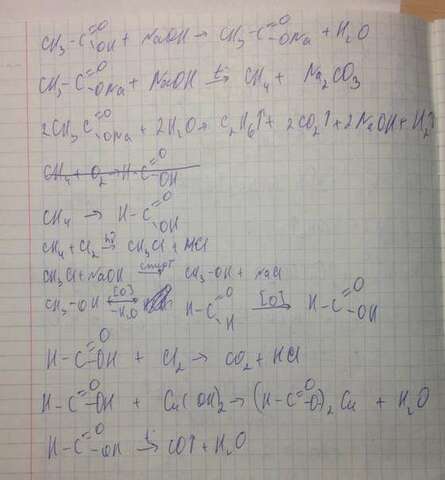 CH₃-C(=O)OH + NaOH → CH₃-C(=O)ONa + H₂O
CH₃-C(=O)ONa + NaOH →(t) CH₄ + Na₂CO₃
2CH₃C(=O)ONa + 2H₂O → C₂H₆↑ + 2CO₂↑ + 2NaOH + H₂↑
CH₄ + O₂ → H-C(=O)OH
CH₄ → H-C(=O)OH
CH₄ + Cl₂ →(hν) CH₃Cl + HCl
CH₃Cl + NaOH →(спирт) CH₃-OH + NaCl
CH₃-OH ⟷([O], -H₂O) H-C(=O)H →([O]) H-C(=O)OH
H-C(=O)OH + Cl₂ → CO₂ + HCl
H-C(=O)OH + Cu(OH)₂ → (H-C(=O)O)₂Cu + H₂O
H-C(=O)OH →(t) CO↑ + H₂O